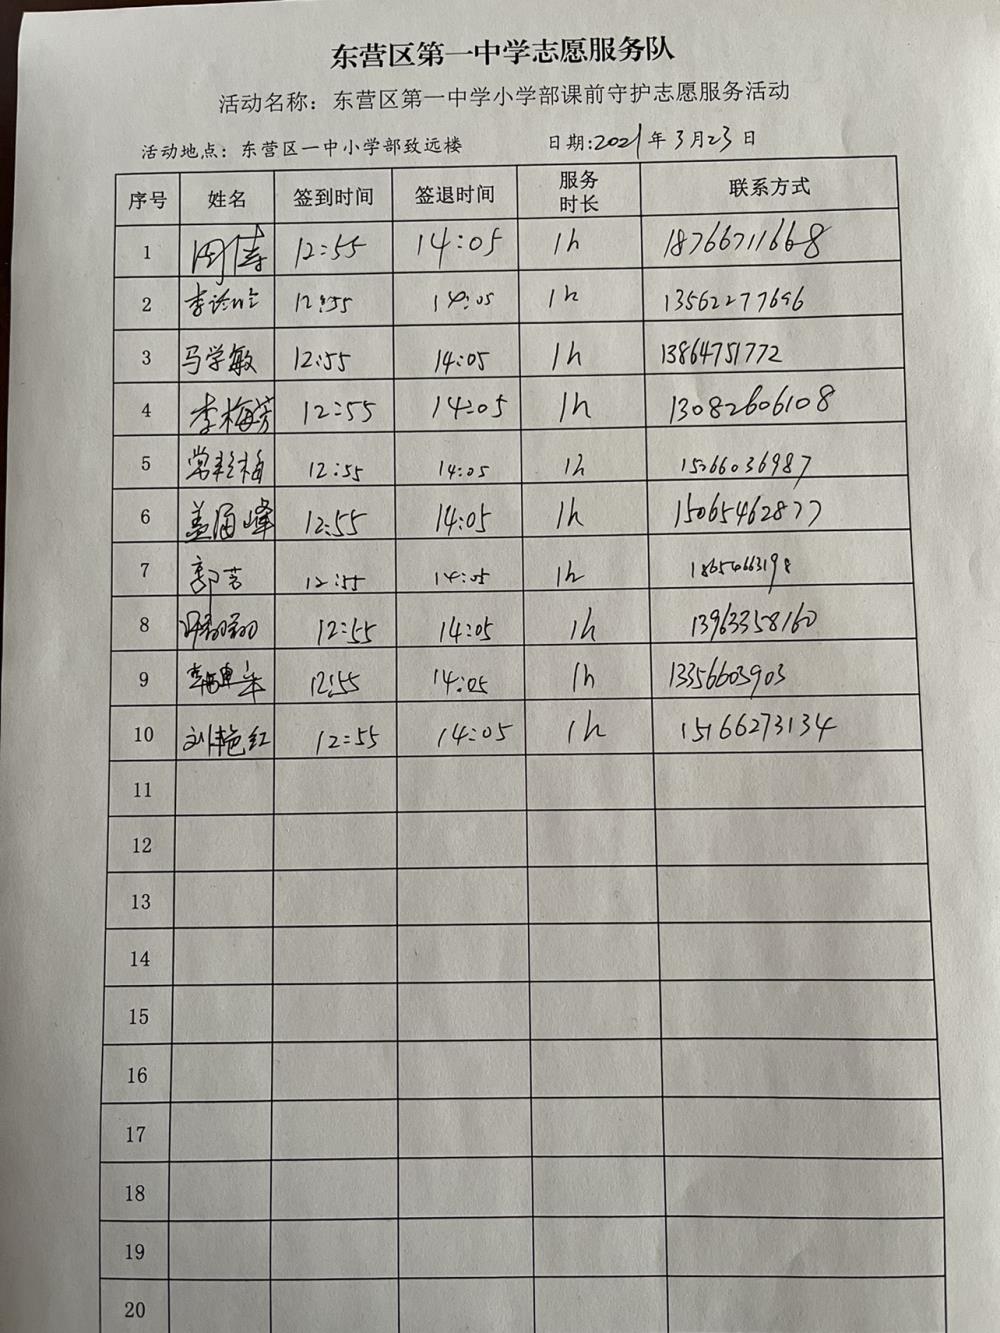 东营区第一中学志愿服务队
活动名称：东营区第一中学小学部课前守护志愿服务活动
活动地点：东营区一中小学部致远楼 日期:2021年3月23日
序号 姓名 签到时间 签退时间 服务时长 联系方式
1 周倩 12:55 14:05 1h 18766711668
2 12:55 14:05 1h 13562277696
3 马学敏 12:55 14:05 1h 13864751772
4 李梅芳 12:55 14:05 1h 13082606108
5 12:55 14:05 1h 15266036987
6 盖涌峰 12:55 14:05 1h 15065462877
7 郭芳 12:55 14:05 1h 18654663198
8 12:55 14:05 1h 13963358160
9 12:55 14:05 1h 13356603903
10 刘艳红 12:55 14:05 1h 15166273134
11
12
13
14
15
16
17
18
19
20